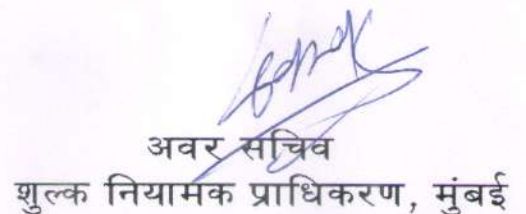 अवर सचिव
शुल्क नियामक प्राधिकरण, मुंबई